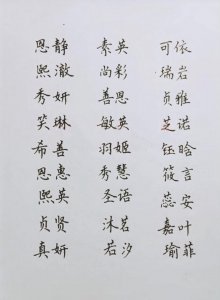 恩静 素英 可依
熙澈 尚彩 瑞岩
秀妍 善恩 贞雅
笑琳 敏英 芝诺
希善 羽姬 钰晗
恩惠 秀慧 筱言
熙英 圣语 蕊安
贞贤 沐若 嘉叶
真妍 若汐 瑜菲